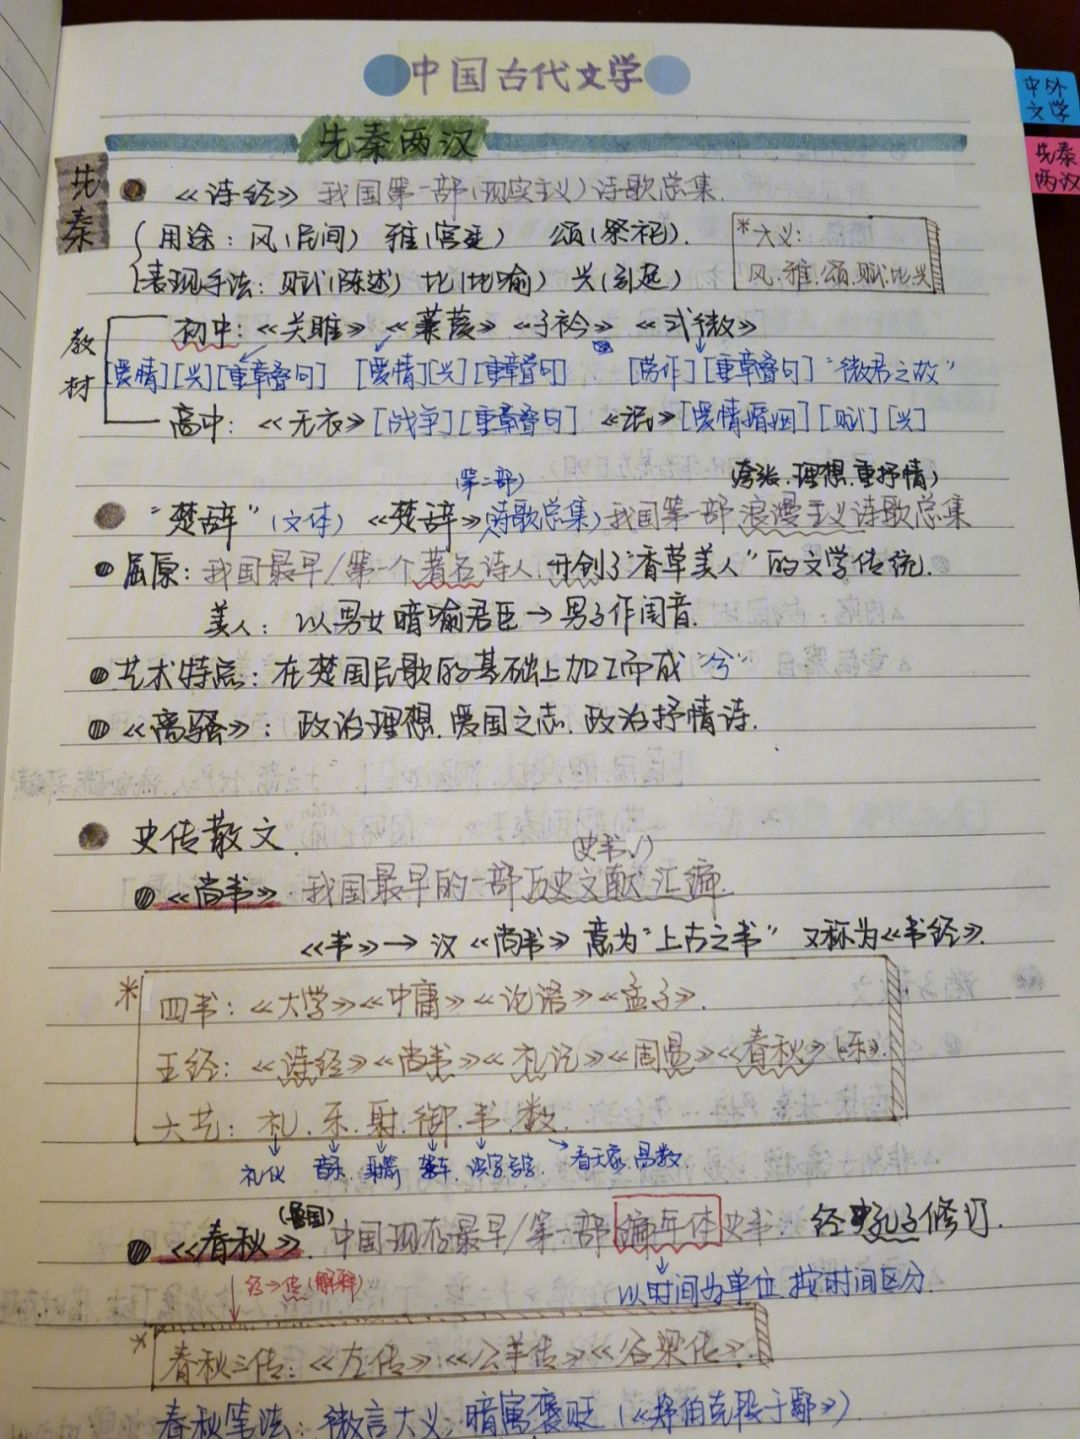 中国古代文学
中外
文学
先秦
两汉
先秦两汉
先秦
《诗经》 我国第一部(现实主义)诗歌总集.
用途：风(民间) 雅(宫廷) 颂(祭祀).
表现手法：赋(陈述) 比(比喻) 兴(引起)
*六义：
风.雅.颂.赋.比.兴
教材
初中：《关雎》《蒹葭》《子衿》《式微》
[爱情][兴][重章叠句] [爱情][兴][重章叠句] [劳作][重章叠句]“微君之故”
高中：《无衣》[战争][重章叠句] 《氓》[爱情婚姻][赋][兴]
(第二部) (夸张.理想.重抒情)
“楚辞”(文体) 《楚辞》(诗歌总集) 我国第一部浪漫主义诗歌总集
屈原：我国最早/第一个著名诗人.开创了“香草美人”的文学传统.
美人：以男女暗喻君臣→男子作闺音.
艺术特点：在楚国民歌的基础上加工而成“兮”
《离骚》：政治理想.爱国之志.政治抒情诗.
史传散文.
(史书√)
《尚书》 我国最早的一部历史文献汇编.
《书》→汉《尚书》意为“上古之书” 又称为《书经》.
*
四书：《大学》《中庸》《论语》《孟子》.
五经：《诗经》《尚书》《礼记》《周易》《春秋》《乐》.
六艺：礼.乐.射.御.书.数.
礼仪 音乐 射箭 驾车 识字写字. 看天象.易数.
(鲁国)
《春秋》.中国现存最早/第一部编年体史书. 经由孔子修订.
经→传(解释) 以时间为单位.按时间区分.
*
春秋三传：《左传》《公羊传》《谷梁传》.
春秋笔法：微言大义.暗寓褒贬(《郑伯克段于鄢》)